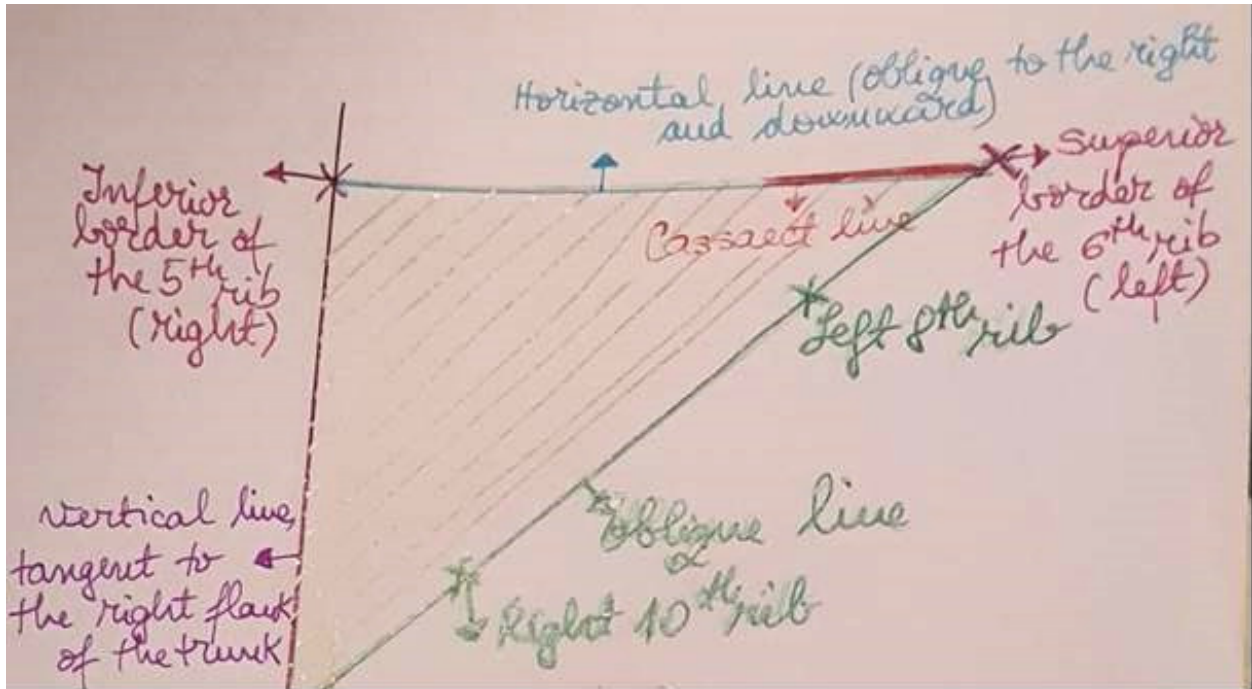 Horizontal line (oblique to the right
and downward)
Inferior
border of
the 5th rib
(right)
Superior
border of
the 6th rib
(left)
line
Left 8th rib
Oblique line
Right 10th rib
Vertical line,
tangent to
the right flank
of the trunk